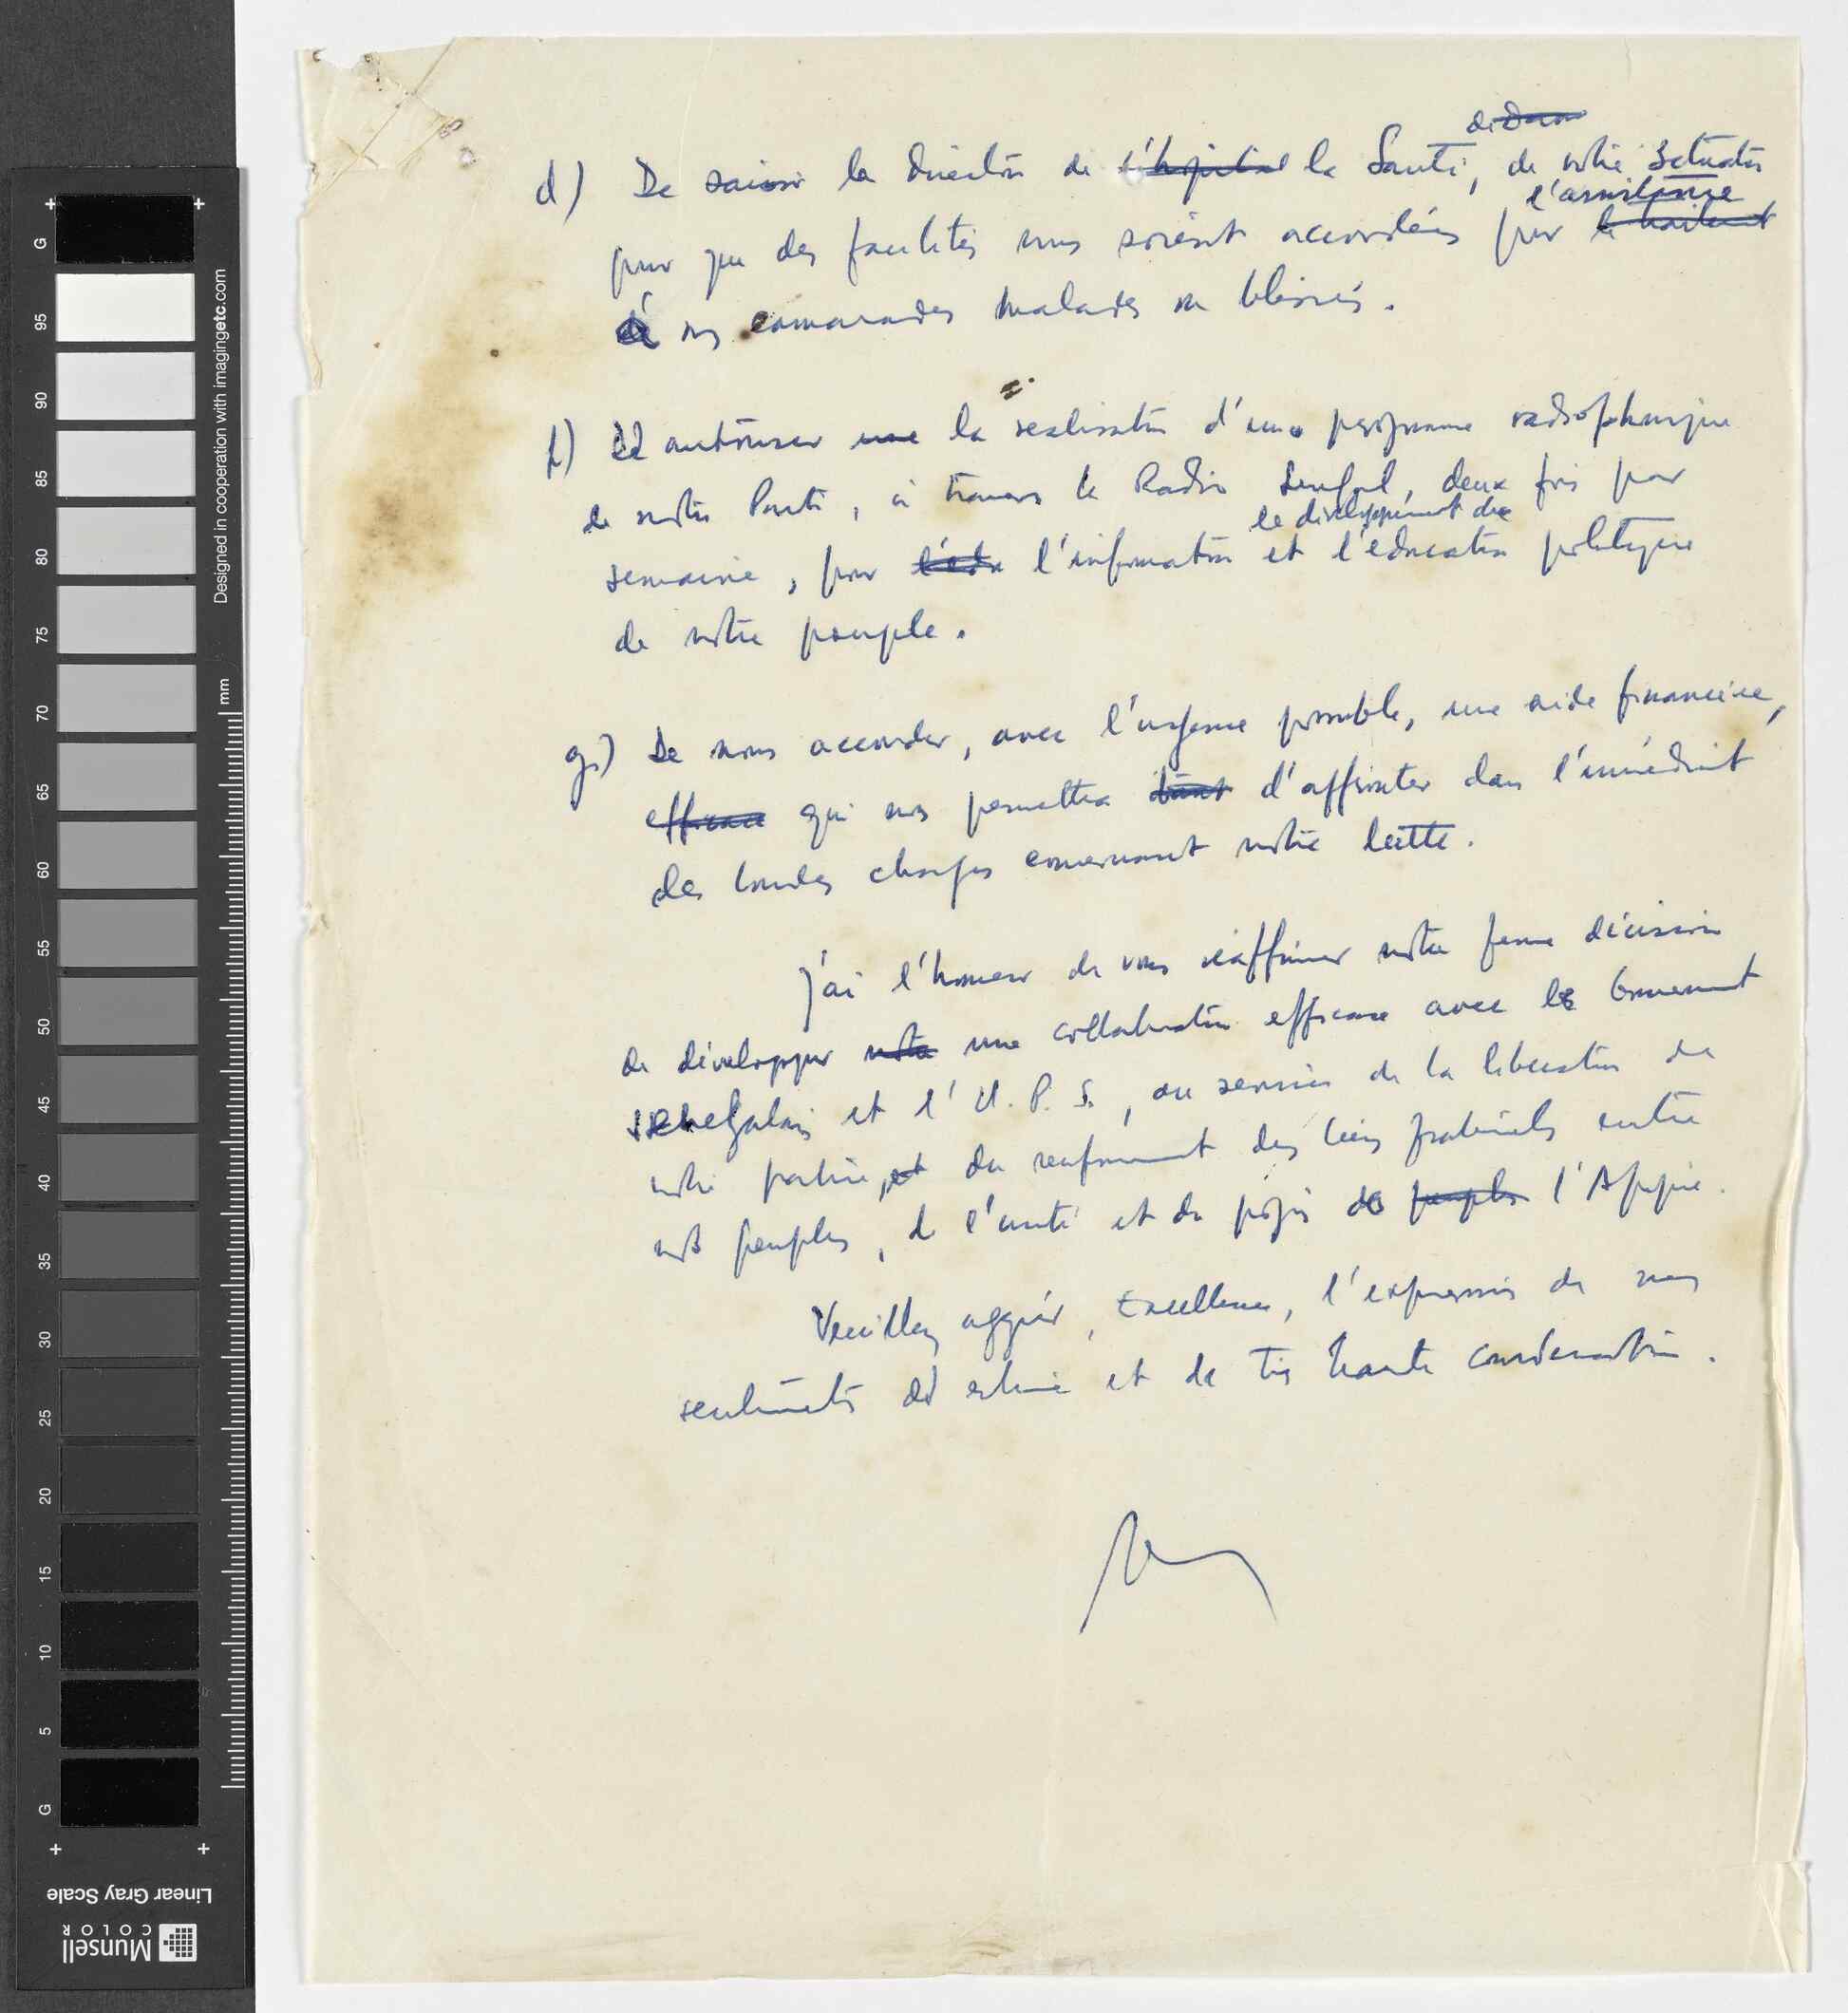 de Dakar
d) De saisir la Direction de l'hôpital la Santé, de notre situation
l'assistance
pour que des facilités nous soient accordées pour le traitement
à nos camarades malades ou blessés.
f) D'autoriser une la réalisation d'un programme radiophonique
de notre Parti, à travers la Radio Sénégal, deux fois par
le développement de
semaine, pour l'édu l'information et l'éducation politique
de notre peuple.
g) De nous accorder, avec l'urgence possible, une aide financière,
efficace qui nous permettra d'affronter dans l'immédiat
des lourdes charges concernant notre lutte.
J'ai l'honneur de vous réaffirmer notre ferme décision
de développer notre une collaboration efficace avec le Gouvernement
sénégalais et l'U.P.S., au service de la libération de
notre patrie, et du renforcement des liens fraternels entre
nos peuples, de l'unité et du progrès de peuples l'Afrique.
Veuillez agréer, Excellence, l'expression de nos
sentiments d'estime et de très haute considération.
Designed in cooperation with imagingetc.com
mm
G
95
90
85
80
75
70
65
60
55
50
45
40
35
30
25
20
15
10
5
G
Linear Gray Scale
Munsell
COLOR